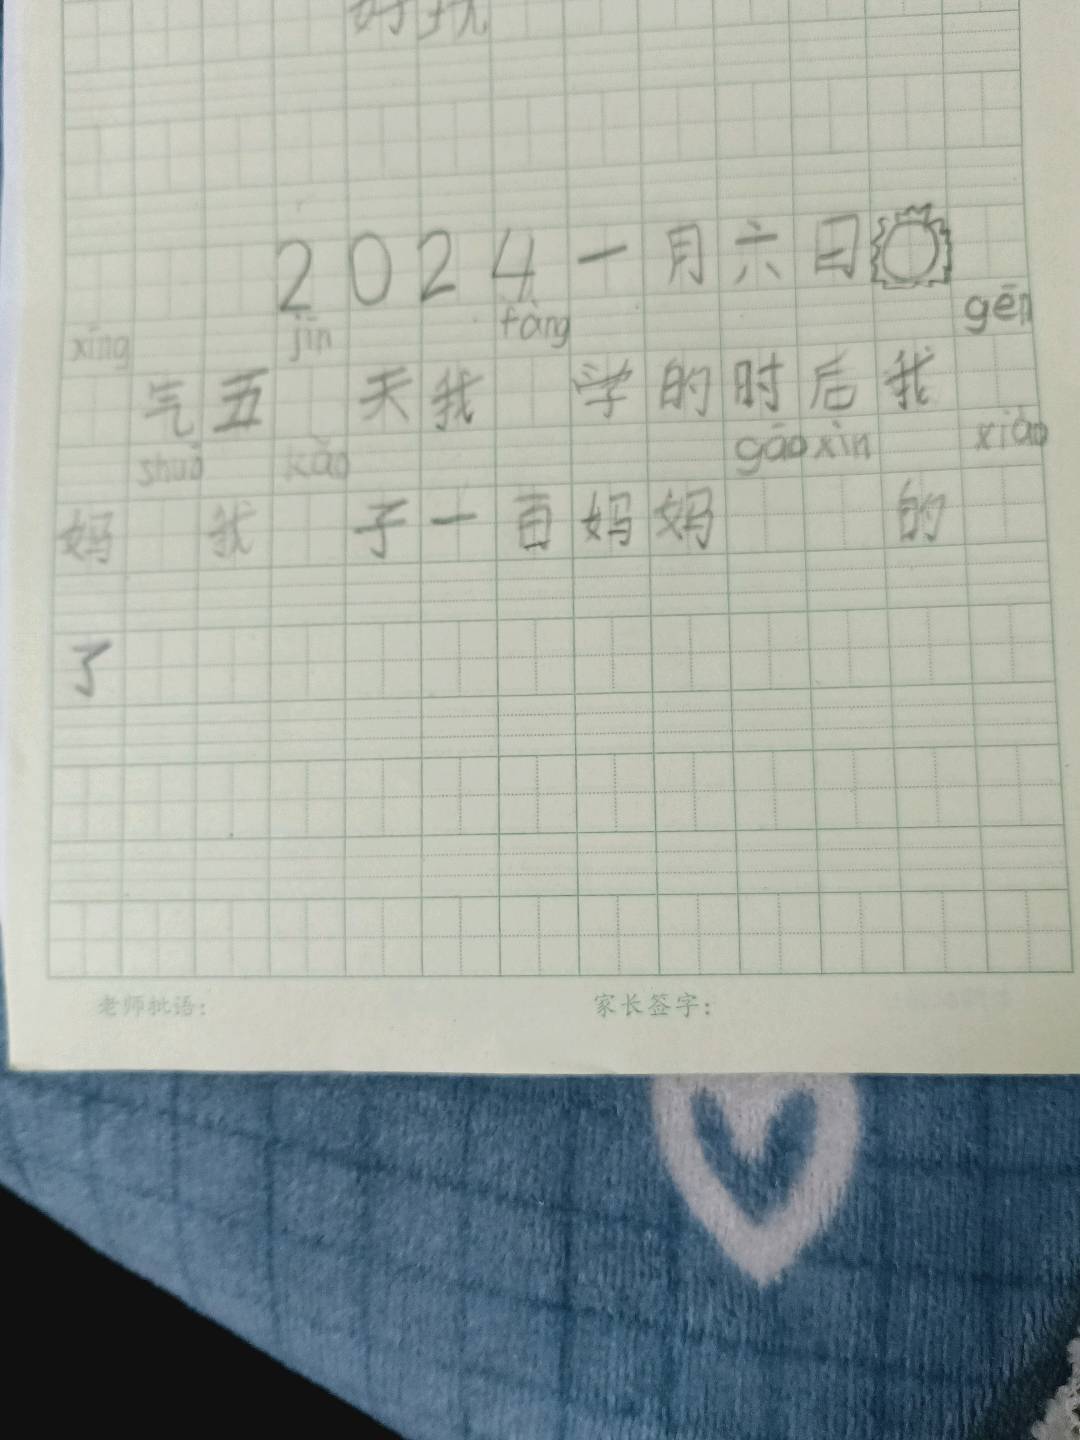 好我
2024一月六日
xīng jīn fàng gēn
气五 天我 学的时后我
shuō kǎo gāo xìn xiào
妈 我 子一百妈妈 的
了
老师批语： 家长签字：